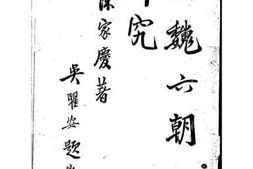 魏六朝
究
家慶著
吳瞿安題